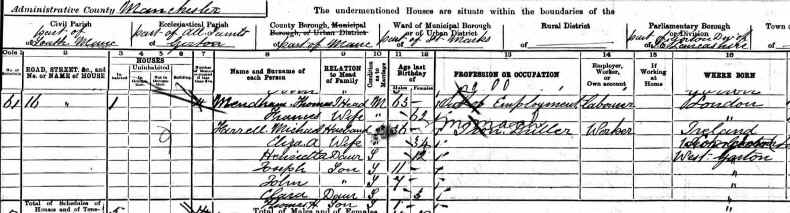 Administrative County Manchester
The undermentioned Houses are situate within the boundaries of the
Civil Parish
Ecclesiastical Parish
County Borough, Municipal Borough, or Urban District
Ward of Municipal Borough or of Urban District
Rural District
Parliamentary Borough or Division
Town
part of South Manc
part of All Saints Gorton
part of Manc
part of St Marks
part of Gorton Div of Lancashire
Cols: 1 2 3 4 5 6 7 8 9 10 11 12 13 14 15 16
ROAD, STREET, &c., and No. or NAME of HOUSE
HOUSES
Uninhabited
Name and Surname of each Person
RELATION to Head of Family
Age last Birthday of
Males Females
PROFESSION OR OCCUPATION
Employer, Worker, or Own account
If Working at Home
WHERE BORN
61 16 " 1 4 Thomas Head M 63 Out of Employment Labourer London
Frances Wife " 62 "
Michael Husband 36 Iron Driller Worker Ireland
Eliza A Wife 34
Henrietta Daur S 12 West Gorton
Joseph Son S 11 "
John " S 7 "
Clara Daur S 3 "
Thomas H Son S 1 "
Total of Schedules of Houses and of Tene-
5
14
Total of Males and of Females